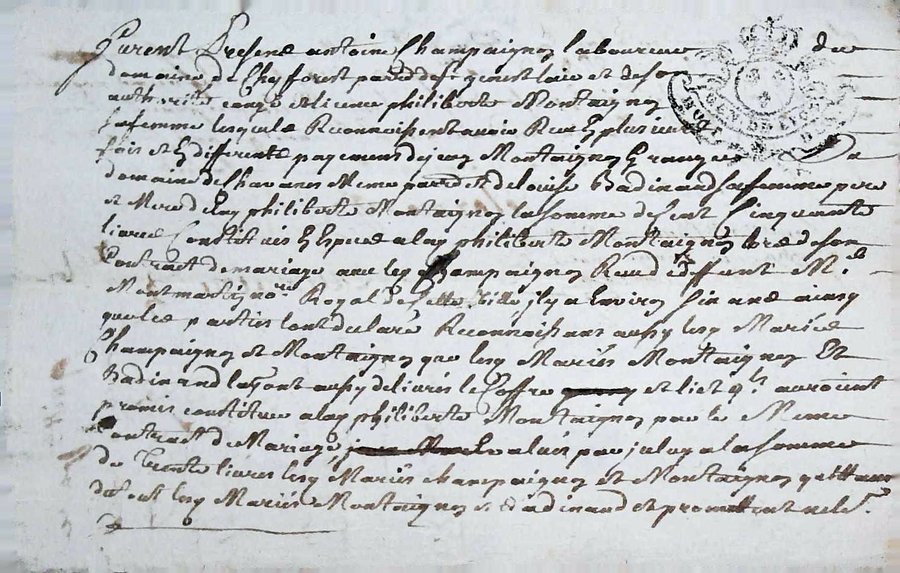 furent Presens antoine Champaignon laboureur du
domaine de Chefforest parr de St genest laie et de so
authorité congé et licence philiberte Montaignon
sa femme lesquels Reconnoissent avoir Receu En plusieurs
fois et En differents payements de jean Montaignon Granger
domaine de Chavanes Meme parr et de louise Badinand sa femme pere
et Mere de lad philiberte Montaignon la somme de Cent Cinquante
livres Constitués En Especes a lad philiberte Montaignon lors de son
Contract de mariage avec led Champaignon Receu de deffunt Me
Montmartin nore Royal de Cette Ville il y a Environ Cinq ans ainsy
que les parties l'ont declaré Reconnoissans aussy lesd Mariés
Champaignon et Montaignon que lesd Mariés Montaignon Et
Badinand leur ont aussy delivrés le Coffre et lict qls auroient
promis constitué a lad philiberte Montaignon par le Meme
Contract de Mariage a la somme
de Trente livres lesd Mariés champaignon et Montaignon quittent
lesd Mariés Montaignon et Badinand et promettent